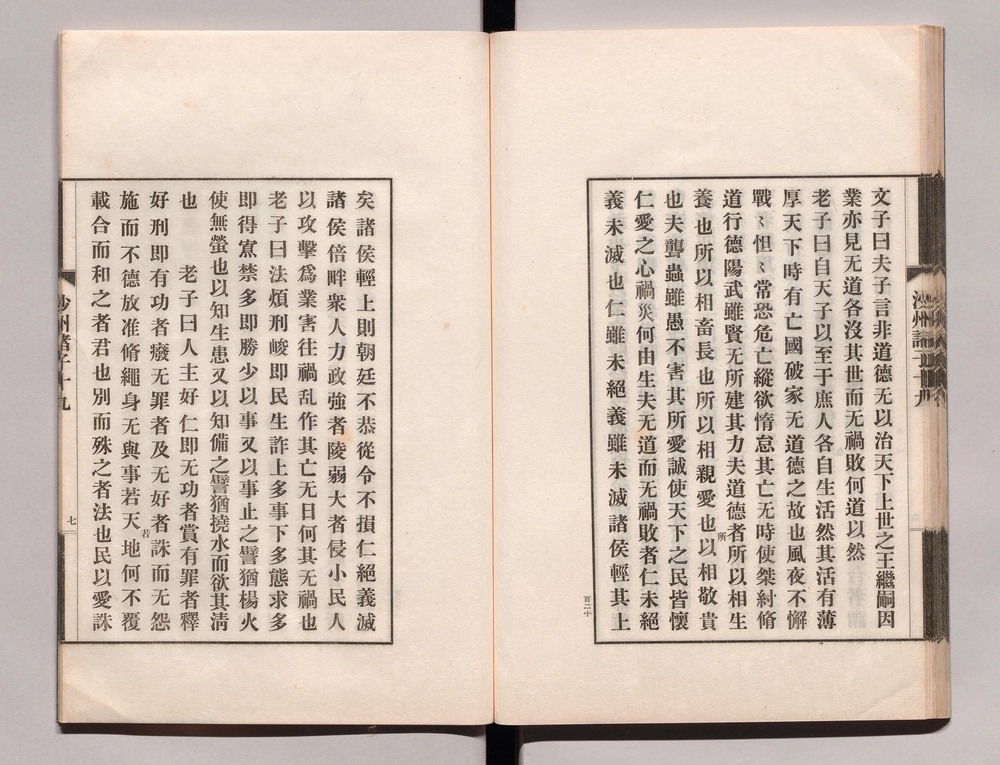 文子曰夫子言非道德无以治天下上世之王繼嗣因
業亦見无道各沒其世而无禍敗何道以然
老子曰自天子以至于庶人各自生活然其活有薄
厚天下時有亡國破家无道德之故也風夜不懈
戰〻怛〻常恐危亡縱欲惰怠其亡无時使桀紂脩
道行德陽武雖賢无所建其力夫道德者所以相生
養也所以相畜長也所以相親愛也以相敬貴
所
也夫聾蟲雖愚不害其所愛誠使天下之民皆懷
仁愛之心禍災何由生夫无道而无禍敗者仁未絕
義未滅也仁雖未絕義雖未滅諸侯輕其上
百二十
矣諸侯輕上則朝廷不恭從令不損仁絕義滅
諸侯倍畔衆人力政強者陵弱大者侵小民人
以攻擊爲業害往禍乱作其亡无日何其无禍也
老子曰法煩刑峻即民生詐上多事下多態求多
即得寡禁多即勝少以事又以事止之譬猶楊火
使無螢也以知生患又以知備之譬猶撓水而欲其清
也 老子曰人主好仁即无功者賞有罪者釋
好刑即有功者癈无罪者及无好者誅而无怨
施而不德放准脩繩身无與事若天地何不覆
若
載合而和之者君也別而殊之者法也民以愛誅
沙州諸子十九
七